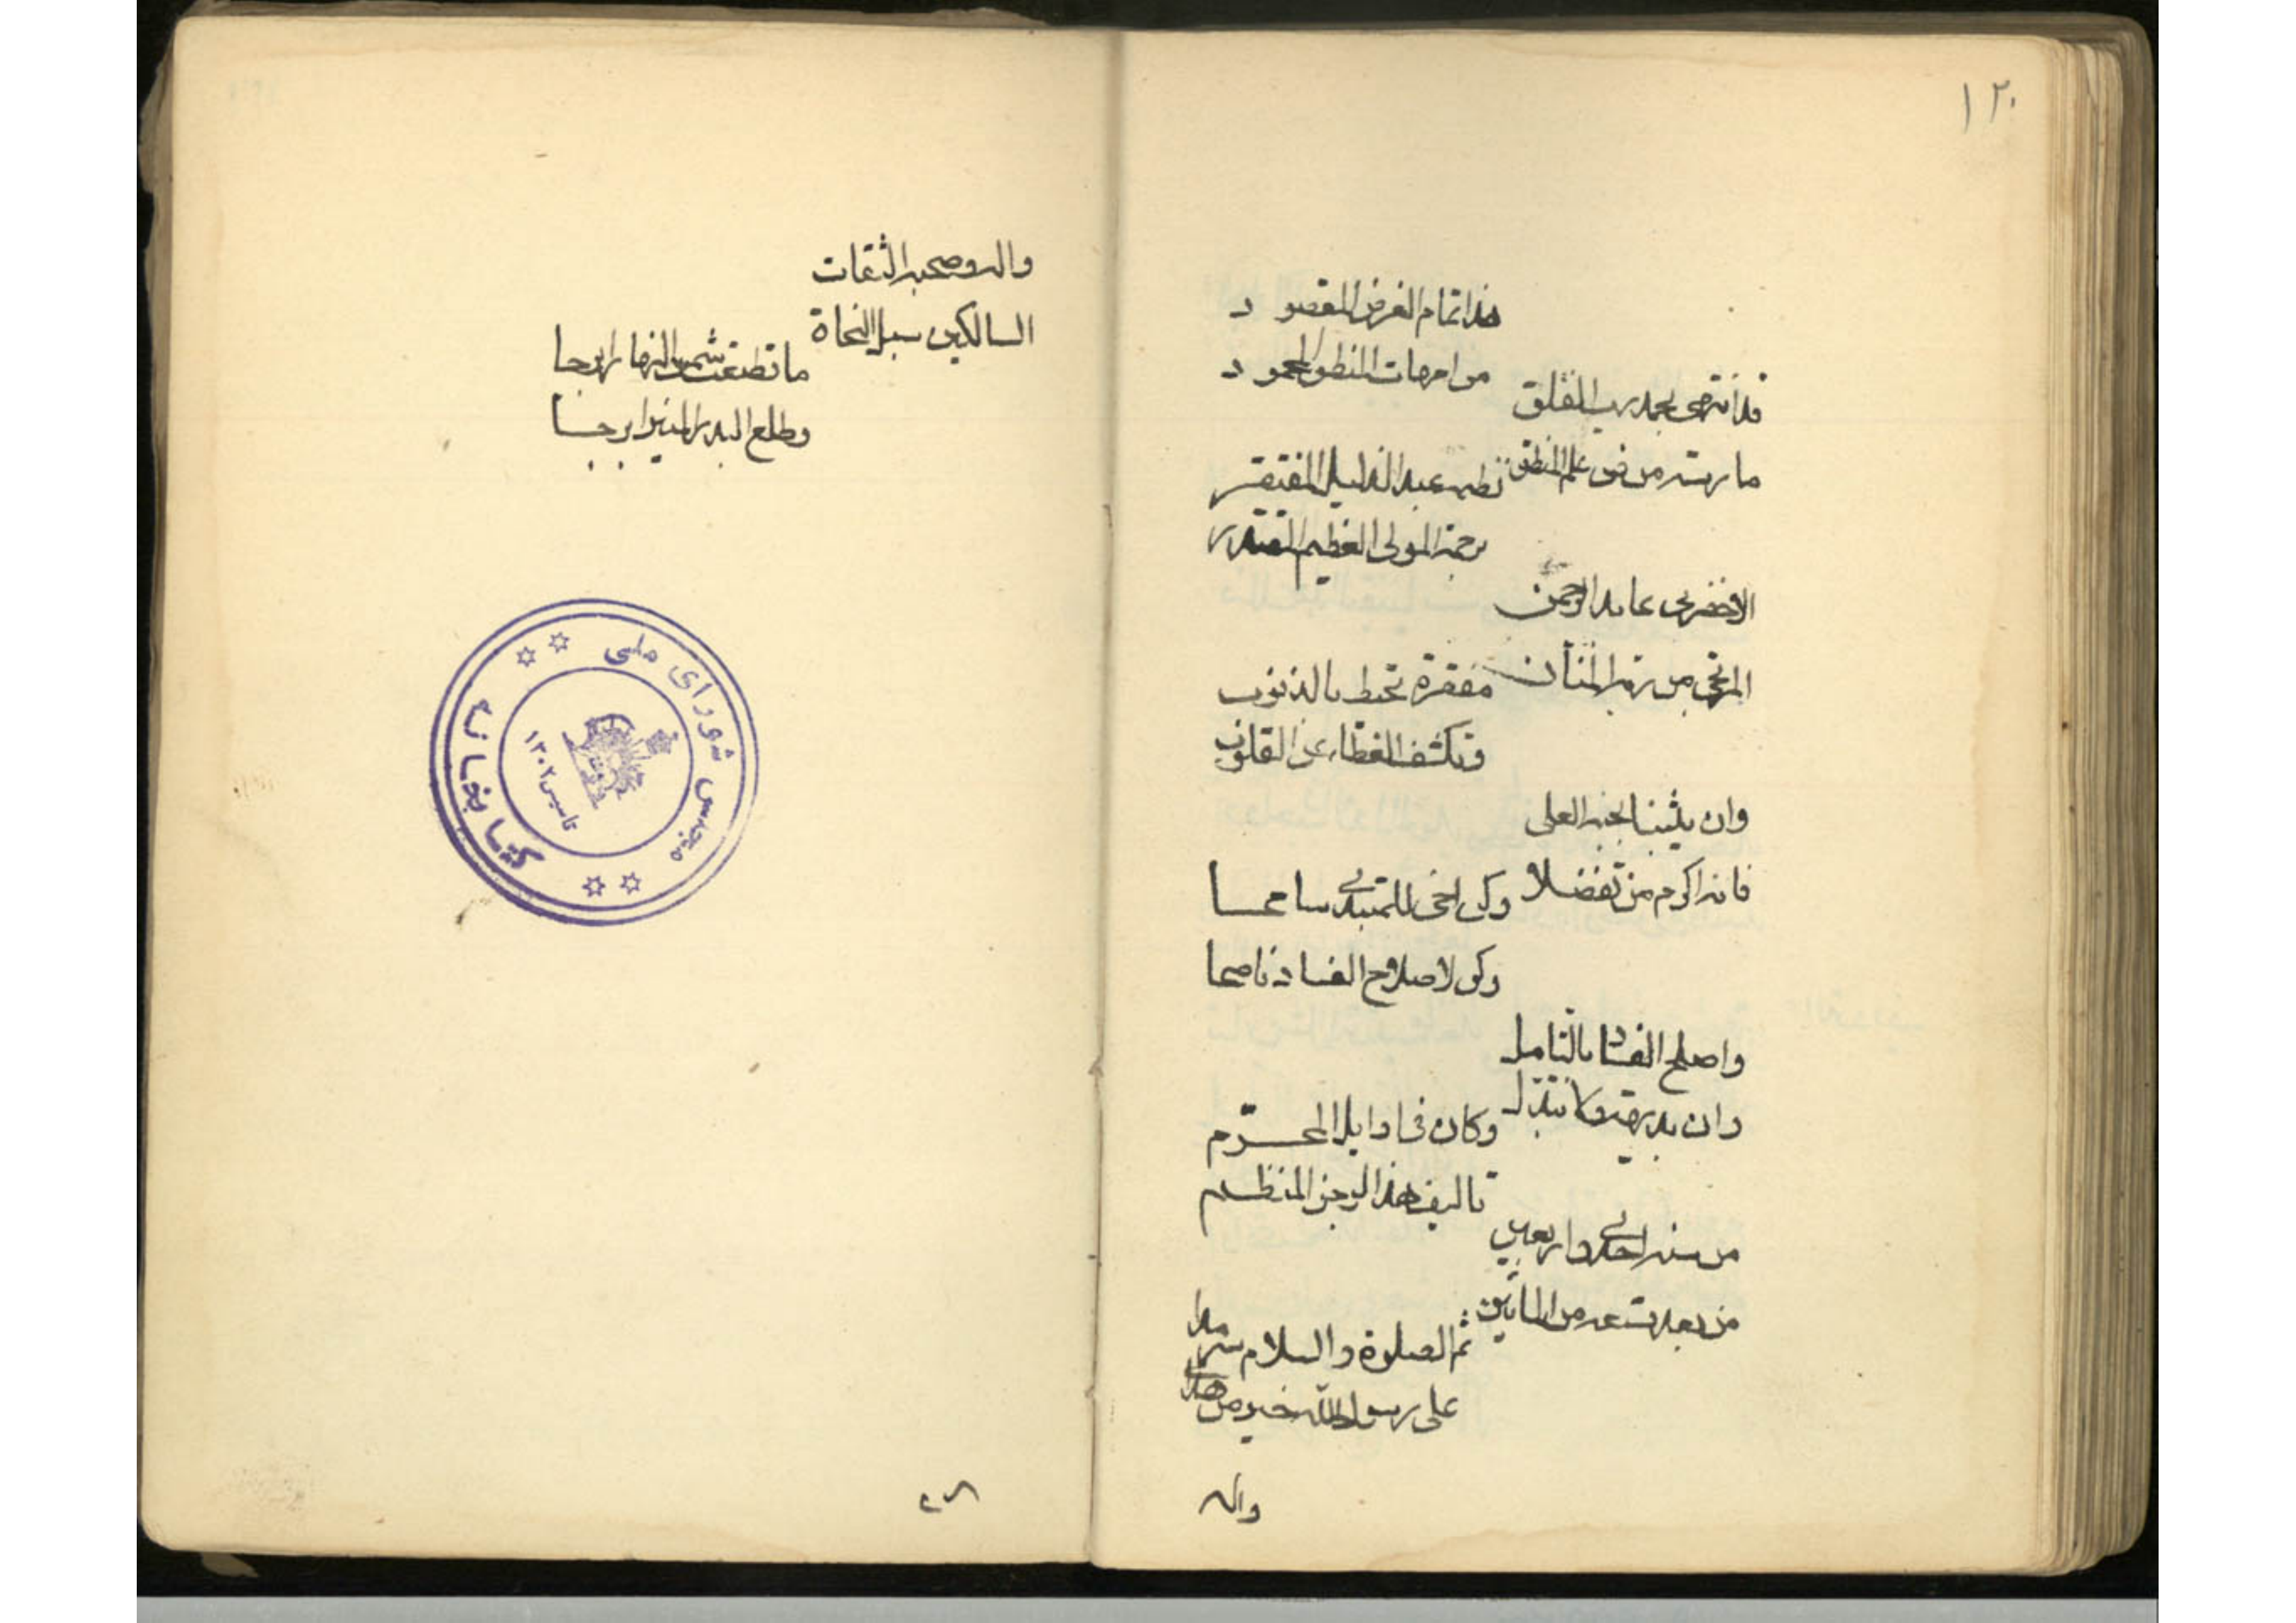 ١٢٠
هذا تمام الغرض المقصو د
من امهات المنطق المحمو د
قد انتهى بحمد رب الفلق
ما رمته من فن علم المنطق
نظمه عبد الذليل المفتقر
رحمة المولى العظيم المقتدر
الاخضرى عابد الرحمن
المرتجى من ربه المنان
مغفرة تحيط بالذنوب
وتكشف الغطاء عن القلوب
وان يثيبنا بجنه العلى
فانه اكرم من تفضلا
وكن اخى للمبتدى سامحا
وكن لاصلاح الفساد ناصحا
واصلح الفساد بالتامل
وان بديهة فلا تبدل
وكان فى اوايل المحرّم
تاليف هذا الرجز المنظم
من سنه احدى واربعين
من بعد تسعه من المايين
ثم الصلوة والسلام سرمدا
على رسول الله خير من هدى
واله
واله وصحبه الثقات
السالكين سبل النجاة
ما قطعت شمس النهار ابرجا
وطلع البدر المنير ابرجا
كتابخانه مجلس شوراى ملى
تاسيس ١٣٠٢